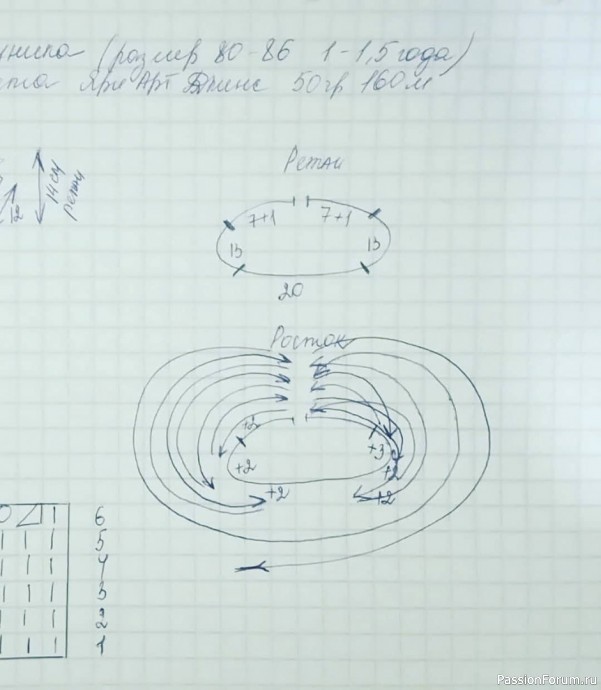 (размер 80-86 1-1,5 года)
ЯрнАрт Джинс 50гр 160м
14 см
реглан
12
Реглан
7+1 7+1
13 13
20
Росток
+2
+3
+2
+2
+2 +2
6
5
4
3
2
1
PassionForum.ru